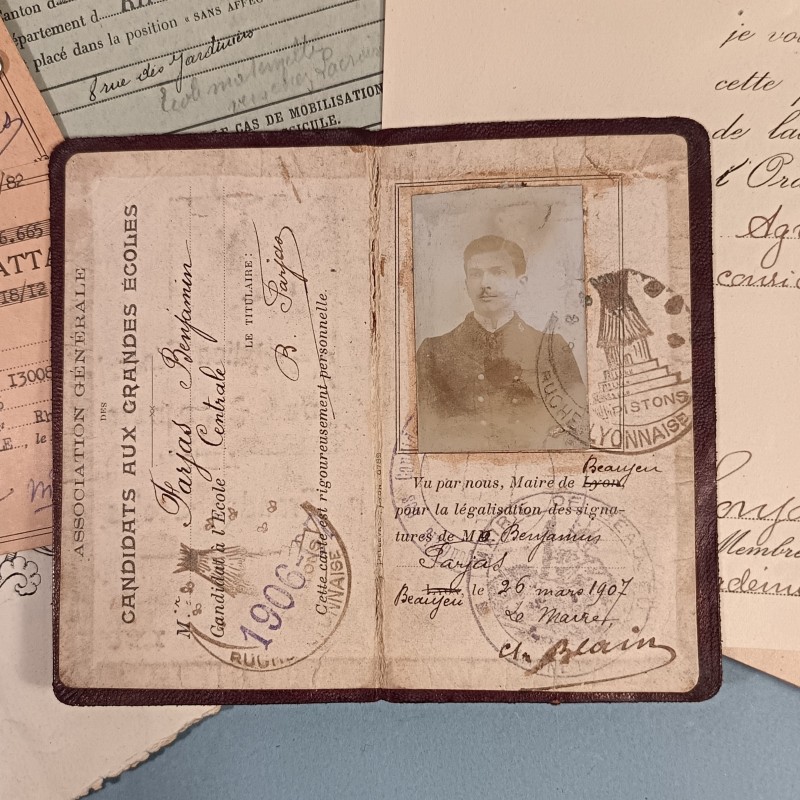 Canton d
épartement d
placé dans la position « SANS AFFEC
8 rue des Jardiniers
École maternelle
CAS DE MOBILISATION
SCICULE.
je vou
cette
de la
l'Ord
Agr
consid
Membre
/82
6.665
ATTA
18/12
13008
E, le
ASSOCIATION GÉNÉRALE
DES
CANDIDATS AUX GRANDES ÉCOLES
Mr Farjas Benjamin
Candidat à l'École Centrale
LE TITULAIRE:
B. Farjas
Cette carte est rigoureusement personnelle.
1906-
RUCHE
NAISE
PISTONS
RUCHE LYONNAISE
Vu par nous, Maire de Lyon, Beaujeu
pour la légalisation des signa-
tures de M. Benjamin
Farjas
Beaujeu le 26 mars 1907
Le Maire,
Cln Blain